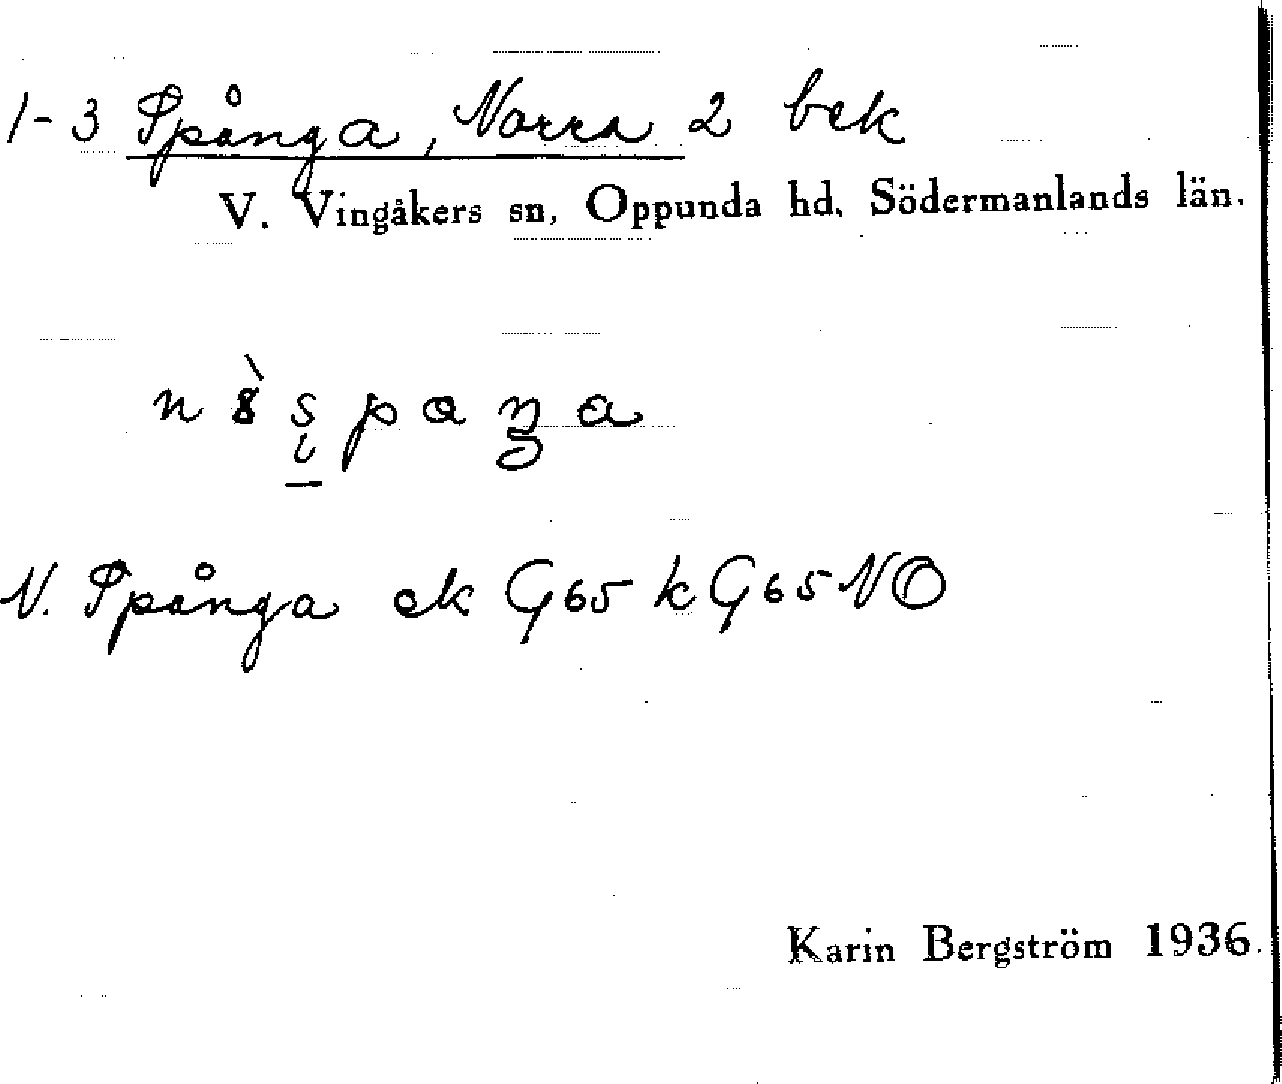 1-3 Spånga, Norra 2 bek
V. Vingåkers sn, Oppunda hd, Södermanlands län.
N. Spånga ek G65 k G65 NO
Karin Bergström 1936.